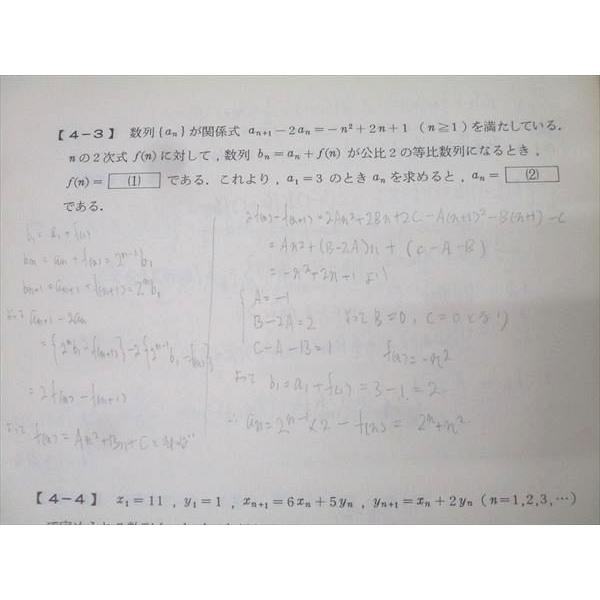 【4-3】 数列{aₙ}が関係式 aₙ₊₁－2aₙ＝－n²＋2n＋1 （n≧1）を満たしている．
nの2次式 f(n) に対して，数列 bₙ＝aₙ＋f(n) が公比2の等比数列になるとき，
f(n)＝ (1) である．これより，a₁＝3 のとき aₙ を求めると，aₙ＝ (2)
である．
b₁ = a₁ + f(1)
bₙ = aₙ + f(n) = 2ⁿ⁻¹b₁
bₙ₊₁ = aₙ₊₁ + f(n+1) = 2ⁿb₁
よって aₙ₊₁ - 2aₙ
= {2ⁿb₁ - f(n+1)} - 2{2ⁿ⁻¹b₁ - f(n)}
= 2f(n) - f(n+1)
よって f(n) = An²+Bn+C とおけば
2f(n) - f(n+1) = 2An²+2Bn+2C-A(n+1)²-B(n+1)-C
= An²+(B-2A)n + (C-A-B)
= -n²+2n+1 より
A = -1
B-2A = 2 よって B=0, C=0 となり
C-A-B = 1 f(n) = -n²
よって b₁ = a₁ + f(1) = 3-1 = 2
∴ aₙ = 2ⁿ⁻¹×2 - f(n) = 2ⁿ+n²
【4-4】 x₁＝11 ，y₁＝1 ，xₙ₊₁＝6xₙ＋5yₙ ，yₙ₊₁＝xₙ＋2yₙ （n＝1,2,3,…）